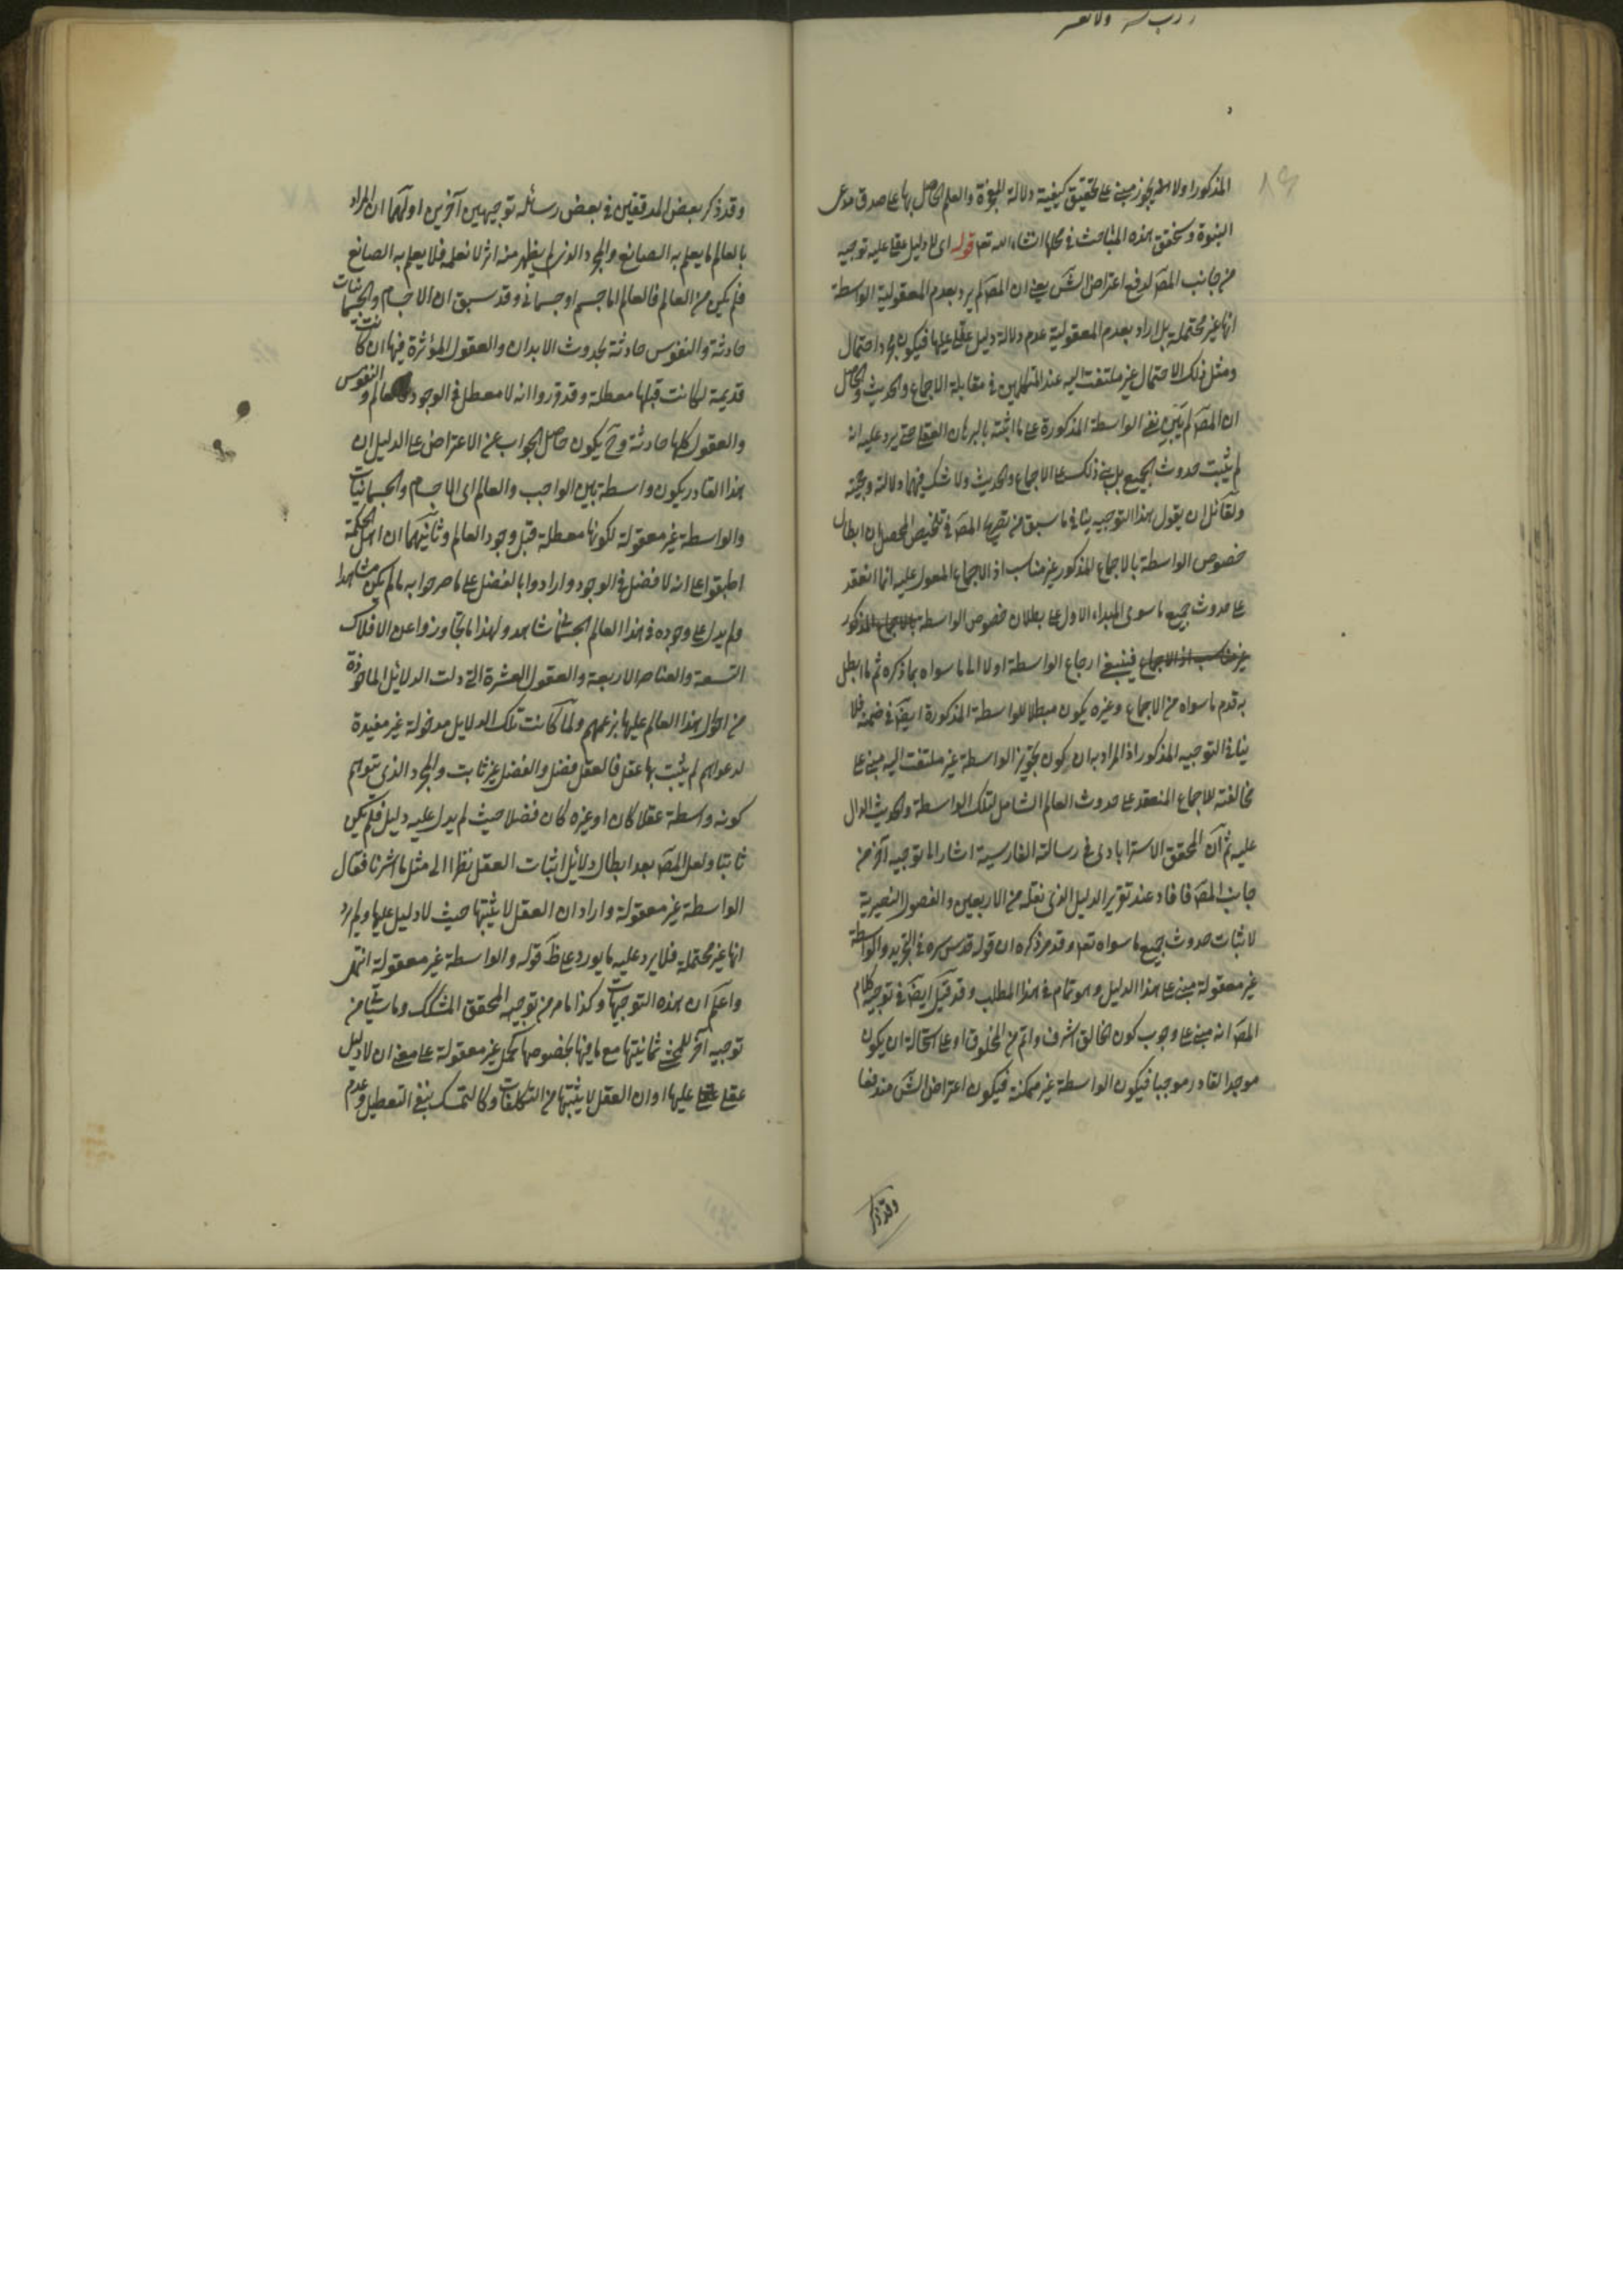 المذكور اولا يجوز مبنى على تحقيق كيفية دلالة المعجزة والعلم الحاصل بها على صدق مدعى
النبوة وسنحقق هذه المباحث فى محلها انشاء الله تعه قوله اى لا دليل عقلى عليه توجيه
من جانب المصَ لدفع اعتراض الشَ يعنى ان المصَ لم يرد بعدم المعقولية الواسطة
انها غير محتملة بل اراد بعدم المعقولية عدم دلالة دليل عقلى عليها فيكون مجرد احتمال
ومثل ذلك الاحتمال غير ملتفت اليه عند المتكلمين فى مقابلة الاجماع والحديث والحاصل
ان المصَ لم يبين نفى الواسطة المذكورة على ما اثبته بالبرهان العقلى حتى يرد عليه انه
لم يثبت حدوث الجميع بل بنى ذلك على الاجماع والحديث ولا شك فيهما دلالة وحجية
ولقائل ان يقول هذا التوجيه ينافى ما سبق من تصريح المصَ فى تلخيص المحصل ان ابطال
خصوص الواسطة بالاجماع المذكور غير مناسب اذ الاجماع المعول عليه انما انعقد
على حدوث جميع ما سوى المبداء الاول على بطلان خصوص الواسطة بالاجماع المذكور
غير مناسب اذ الاجماع فينبغى ارجاع الواسطة اولا الى ما سواه بما ذكره ثم ما ابطل
به قدم ما سواه من الاجماع وغيره يكون مبطلا للواسطة المذكورة ايضَ فى ضمنه فلا
ينافى التوجيه المذكور اذ المراد به ان كون تجويز الواسطة غير ملتفت اليه مبنى على
مخالفته للاجماع المنعقد على حدوث العالم الشامل لتلك الواسطة والحديث الدال
عليه ثم ان المحقق الاسترابادى فى رسالته الفارسية اشار الى توجيه آخر من
جانب المصَ فافاد عند تقرير الدليل الذى نقله من الاربعين والفصول النصيرية
لاثبات حدوث جميع ما سواه تعه وقد مر ذكره ان قوله قدس سره فى التجريد والواسطة
غير معقولة مبنى على هذا الدليل وهو تمام فى هذا المطلب وقد قيل ايضَ فى توجيه كلام
المصَ انه مبنى على وجوب كون الخالق اشرف واتم من المخلوق او على استحالة ان يكون
موجد القادر موجبا فيكون الواسطة غير ممكنة فيكون اعتراض الشَ مندفعا
وقد ذكر
وقد ذكر بعض المدققين فى بعض رسائله توجيهين آخرين اولهما ان المراد
بالعالم ما يعلم به الصانع والمجرد الذى لم يظهر منه اثر لا نعلمه فلا يعلم به الصانع
فلم يكن من العالم فالعالم اما جسم او جسمانى وقد سبق ان الاجسام والجسمانيات
حادثة والنفوس حادثة بحدوث الابدان والعقول المؤثرة فيها ان كانت
قديمة لكانت قبلها معطلة وقد قرروا انه لا معطل فى الوجود فالعالم والنفوس
والعقول كلها حادثة وحَ يكون حاصل الجواب عن الاعتراض على الدليل ان
هذا القادر يكون واسطة بين الواجب والعالم اى الاجسام والجسمانيات
والواسطة غير معقولة لكونها معطلة قبل وجود العالم وثانيهما ان اهل الحكمة
اطبقوا على انه لا فضل فى الوجود وارادوا بالفضل على ما صرحوا به ما لم يكن مشاهدا
ولم يدل على وجوده فى هذا العالم الجسمانى شاهد ولهذا ما تجاوزوا عن الافلاك
التسعة والعناصر الاربعة والعقول العشرة التى دلت الدلائل الماخوذة
من احوال هذا العالم عليها بزعمهم ولما كانت تلك الدلايل مدخولة غير مفيدة
لدعواهم لم يثبت بها عقل فالعقل فضل والفضل غير ثابت والمجرد الذى يتوهم
كونه واسطة عقلا كان او غيره كان فضلا حيث لم يدل عليه دليل فلم يكن
ثابتا ولعل المصَ بعد ابطال دلائل اثبات العقل نظرا الى مثل ما اشرنا فقال
الواسطة غير معقولة واراد ان العقل لا يثبتها حيث لا دليل عليها ولم يرد
انها غير محتملة فلا يرد عليه ما يورد على ظَ قوله والواسطة غير معقولة انتهى
واعلم ان هذه التوجيهات وكذا ما مر من توجيه المحقق المشكك وما سيأتى من
توجيه آخر للمحشى ثمانيتها مع ما فيها بخصوصها كحمل غير معقولة على معنى ان لا دليل
عقلى عليها او ان العقل لا يثبتها من التكلفات وكالتمسك بنفى التعطيل وعدم